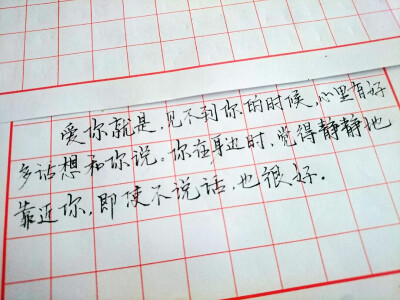 愛你就是,见不到你的时候,心里有好
多话想和你说。你在身边时,觉得静静地
靠近你,即使不说话,也很好。